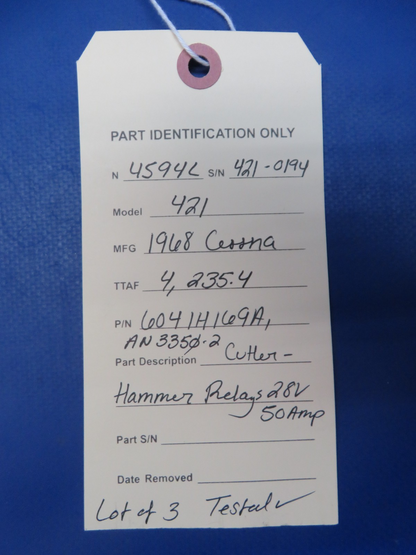 PART IDENTIFICATION ONLY
N 4594L S/N 421-0194
Model 421
MFG 1968 Cessna
TTAF 4,235.4
P/N 6041H169A,
AN3350-2
Part Description Cutler-
Hammer Relays 28V
50Amp
Part S/N
Date Removed
Lot of 3 Tested ✓